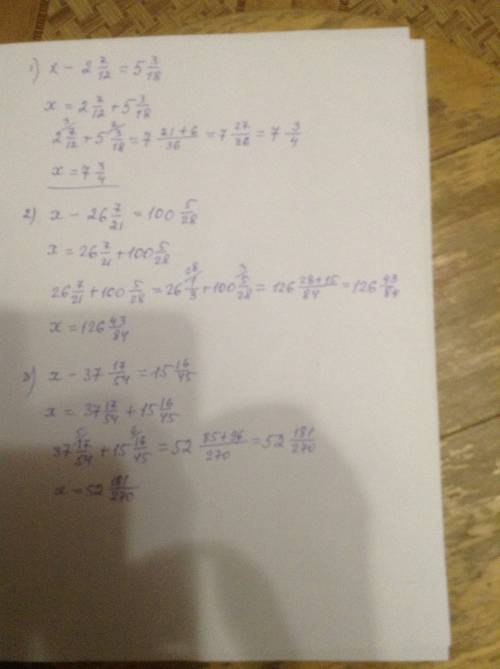 1) x - 2 7/12 = 5 3/18
x = 2 7/12 + 5 3/18
2 7/12 + 5 3/18 = 7 21+6/36 = 7 27/36 = 7 3/4
x = 7 3/4
2) x - 26 7/21 = 100 5/28
x = 26 7/21 + 100 5/28
26 7/21 + 100 5/28 = 26 1/3 + 100 5/28 = 126 28+15/84 = 126 43/84
x = 126 43/84
3) x - 37 17/54 = 15 16/45
x = 37 17/54 + 15 16/45
37 17/54 + 15 16/45 = 52 85+96/270 = 52 181/270
x = 52 181/270